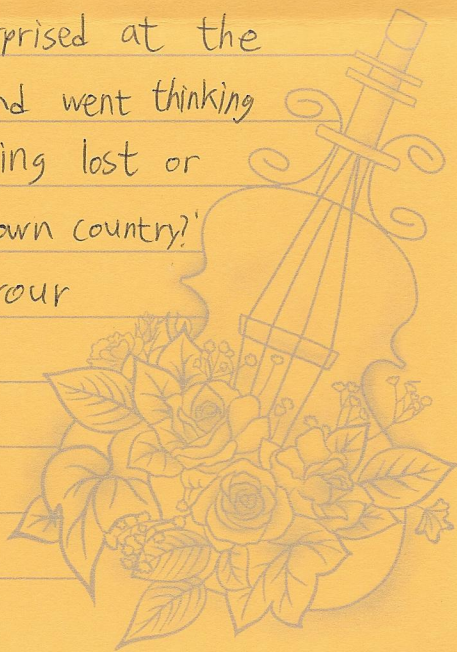 prised at the
nd went thinking
ing lost or
own country?'
our